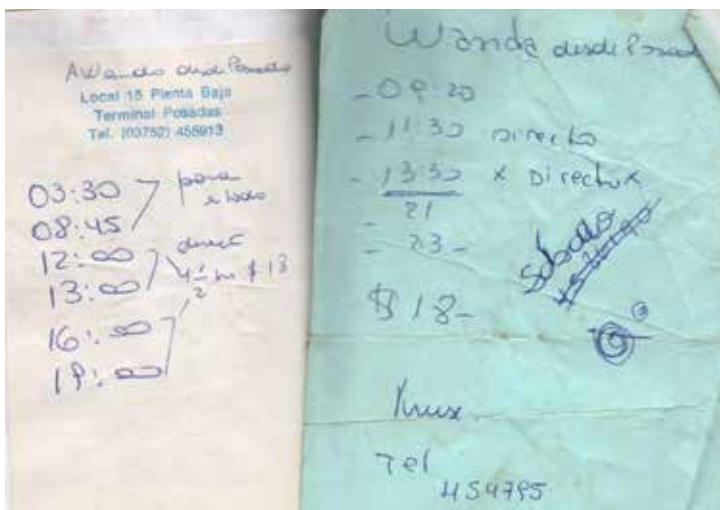 A Wanda desde Posadas
Local 15 Planta Baja
Terminal Posadas
Tel. (03752) 455913
03:30
08:45 para
12:00 direct
13:00 4 1/2 hs $ 18
16:00
19:00
Wanda desde Posad
- 09:20
- 11:30 Directo
- 13:30 x Directo x
- 21
- 23 -
Sabado
$ 18-
Tel
454795